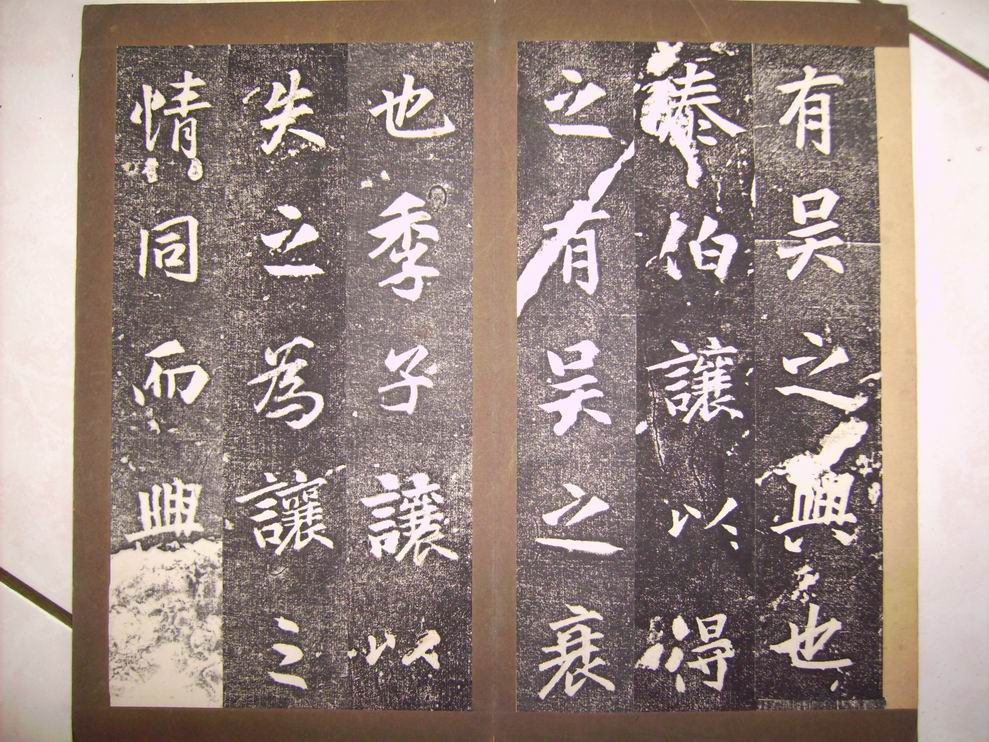 有吴之興也
泰伯讓以得
之有吴之衰
也季子讓以
失之為讓之
情同而興